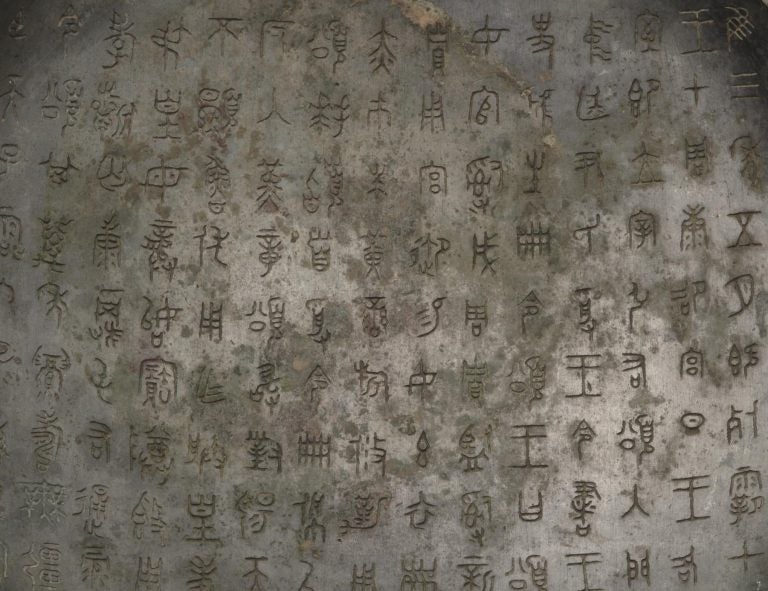 隹三年五月既死霸甲
王才周康卲宮旦王各
室即立宰引右頌入門
中廷尹氏受王令書王
史虢生冊令頌王曰頌
女官𤔲成周貯監𤔲新
貯用宮御易女玄衣黹
赤巿朱黃䜌旂攸勒用
頌拜𩒨首受令冊佩以
反入堇章頌敢對揚天
不顯魯休用乍朕皇考
弔皇母龏始寶尊𣪘用
孝𣄨匄康𤔲屯右通彔
令頌其萬年眉壽無彊
臣天子霝冬